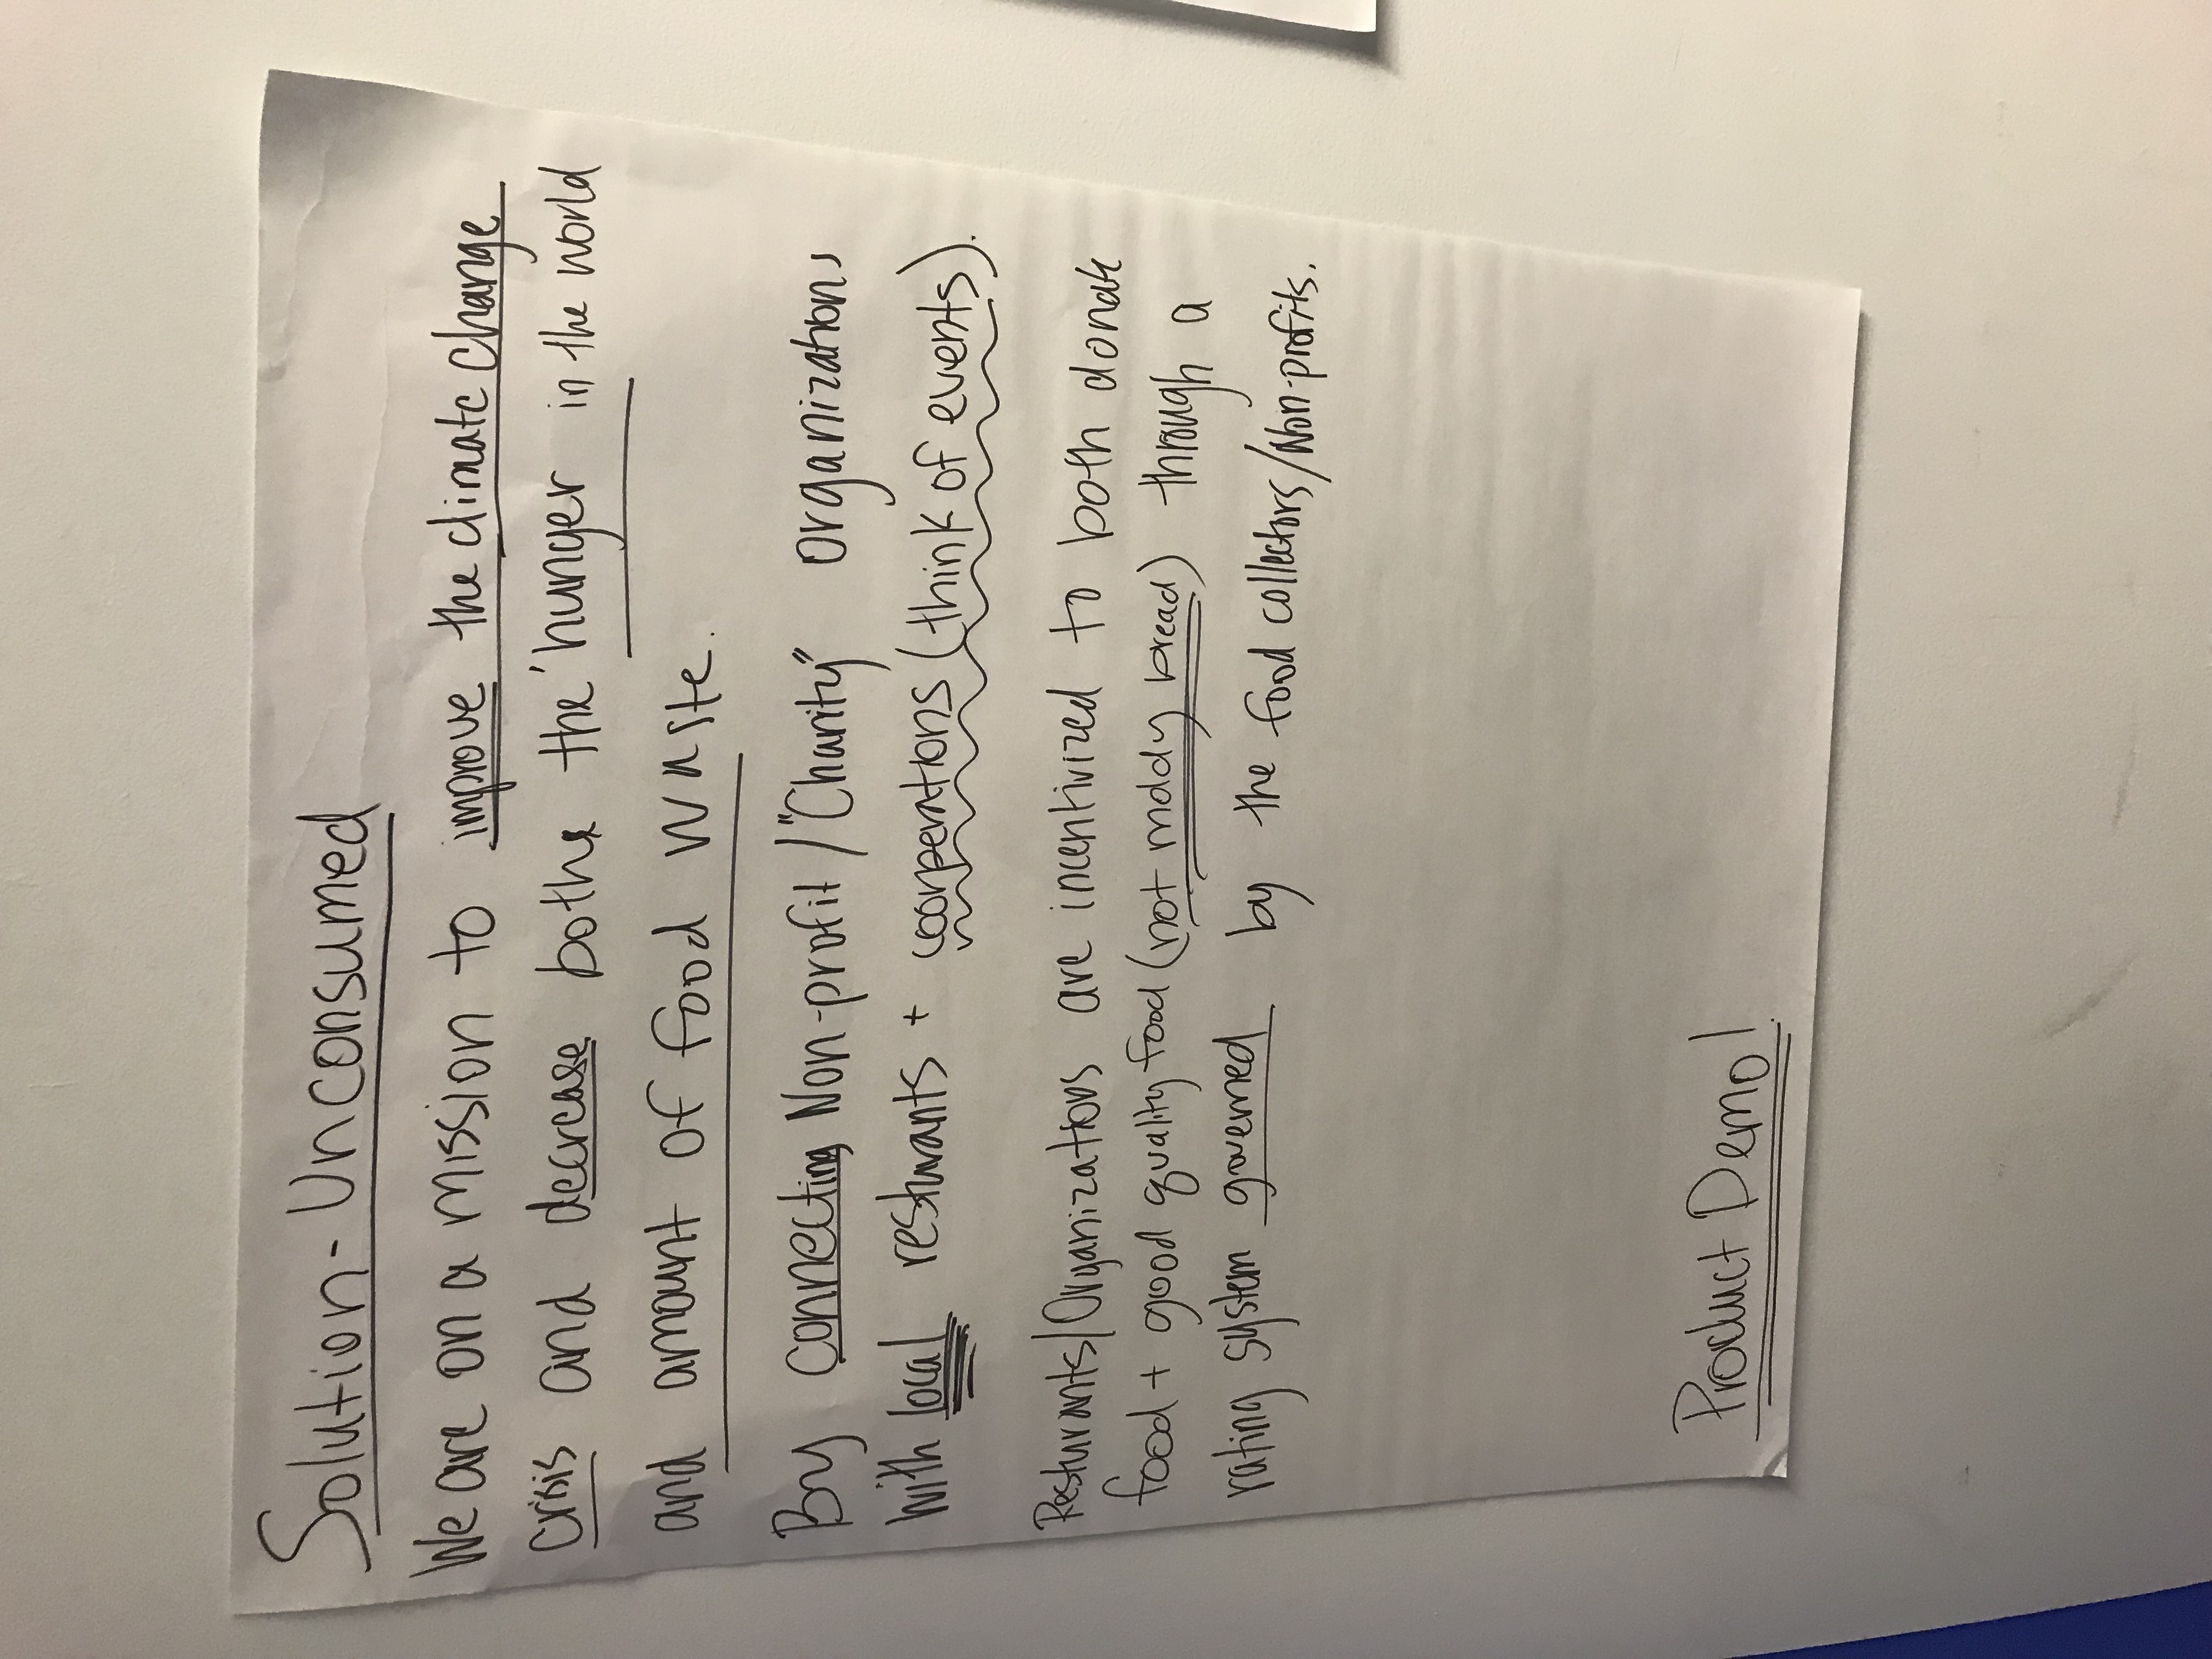 Solution - Unconsumed
We are on a mission to improve the climate change
crisis and decrease both the hunger in the world
and amount of food waste.
By connecting Non-profit / "Charity" organizations
with local resturants + coorperations (think of events).
Resturants/Organizations are incentivized to both donate
food + good quality food (not moldy bread) through a
rating system governed by the food collectors/Non-profits.
Product Demo!